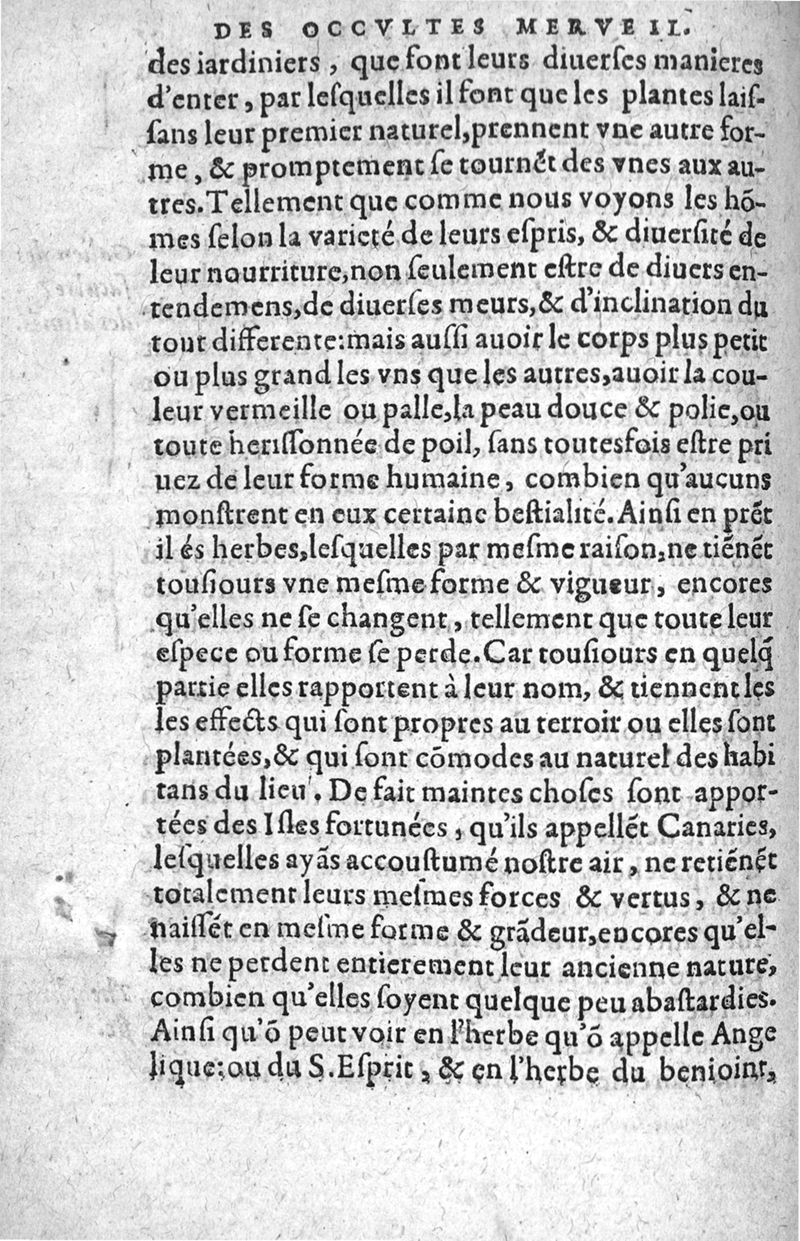 DES OCCVLTES MERVEIL.
des iardiniers, que font leurs diuerſes manieres
d'enter, par leſquelles il font que les plantes laiſ-
ſans leur premier naturel, prennent vne autre for-
me, & promptement ſe tournẽt des vnes aux au-
tres. Tellement que comme nous voyons les hõ-
mes ſelon la varieté de leurs eſpris, & diuerſité de
leur nourriture, non ſeulement eſtre de diuers en-
tendemens, de diuerſes meurs, & d'inclination du
tout differente: mais auſſi auoir le corps plus petit
ou plus grand les vns que les autres, auoir la cou-
leur vermeille ou palle, la peau douce & polie, ou
toute heriſſonnée de poil, ſans toutesfois eſtre pri
uez de leur forme humaine, combien qu'aucuns
monſtrent en eux certaine beſtialité. Ainſi en prẽt
il és herbes, leſquelles par meſme raiſon, ne tiẽnẽt
touſiours vne meſme forme & vigueur, encores
qu'elles ne ſe changent, tellement que toute leur
eſpece ou forme ſe perde. Car touſiours en quelq̃
partie elles rapportent à leur nom, & tiennent les
les effects qui ſont propres au terroir ou elles ſont
plantées, & qui ſont cõmodes au naturel des habi
tans du lieu. De fait maintes choſes ſont appor-
tées des Iſles fortunées, qu'ils appellẽt Canaries,
leſquelles ayãs accouſtumé noſtre air, ne retiẽnẽt
totalement leurs meſmes forces & vertus, & ne
naiſſẽt en meſme forme & grãdeur, encores qu'el-
les ne perdent entierement leur ancienne nature,
combien qu'elles ſoyent quelque peu abaſtardies.
Ainſi qu'õ peut voir en l'herbe qu'õ appelle Ange
lique: ou du S. Eſprit, & en l'herbe du benioint,